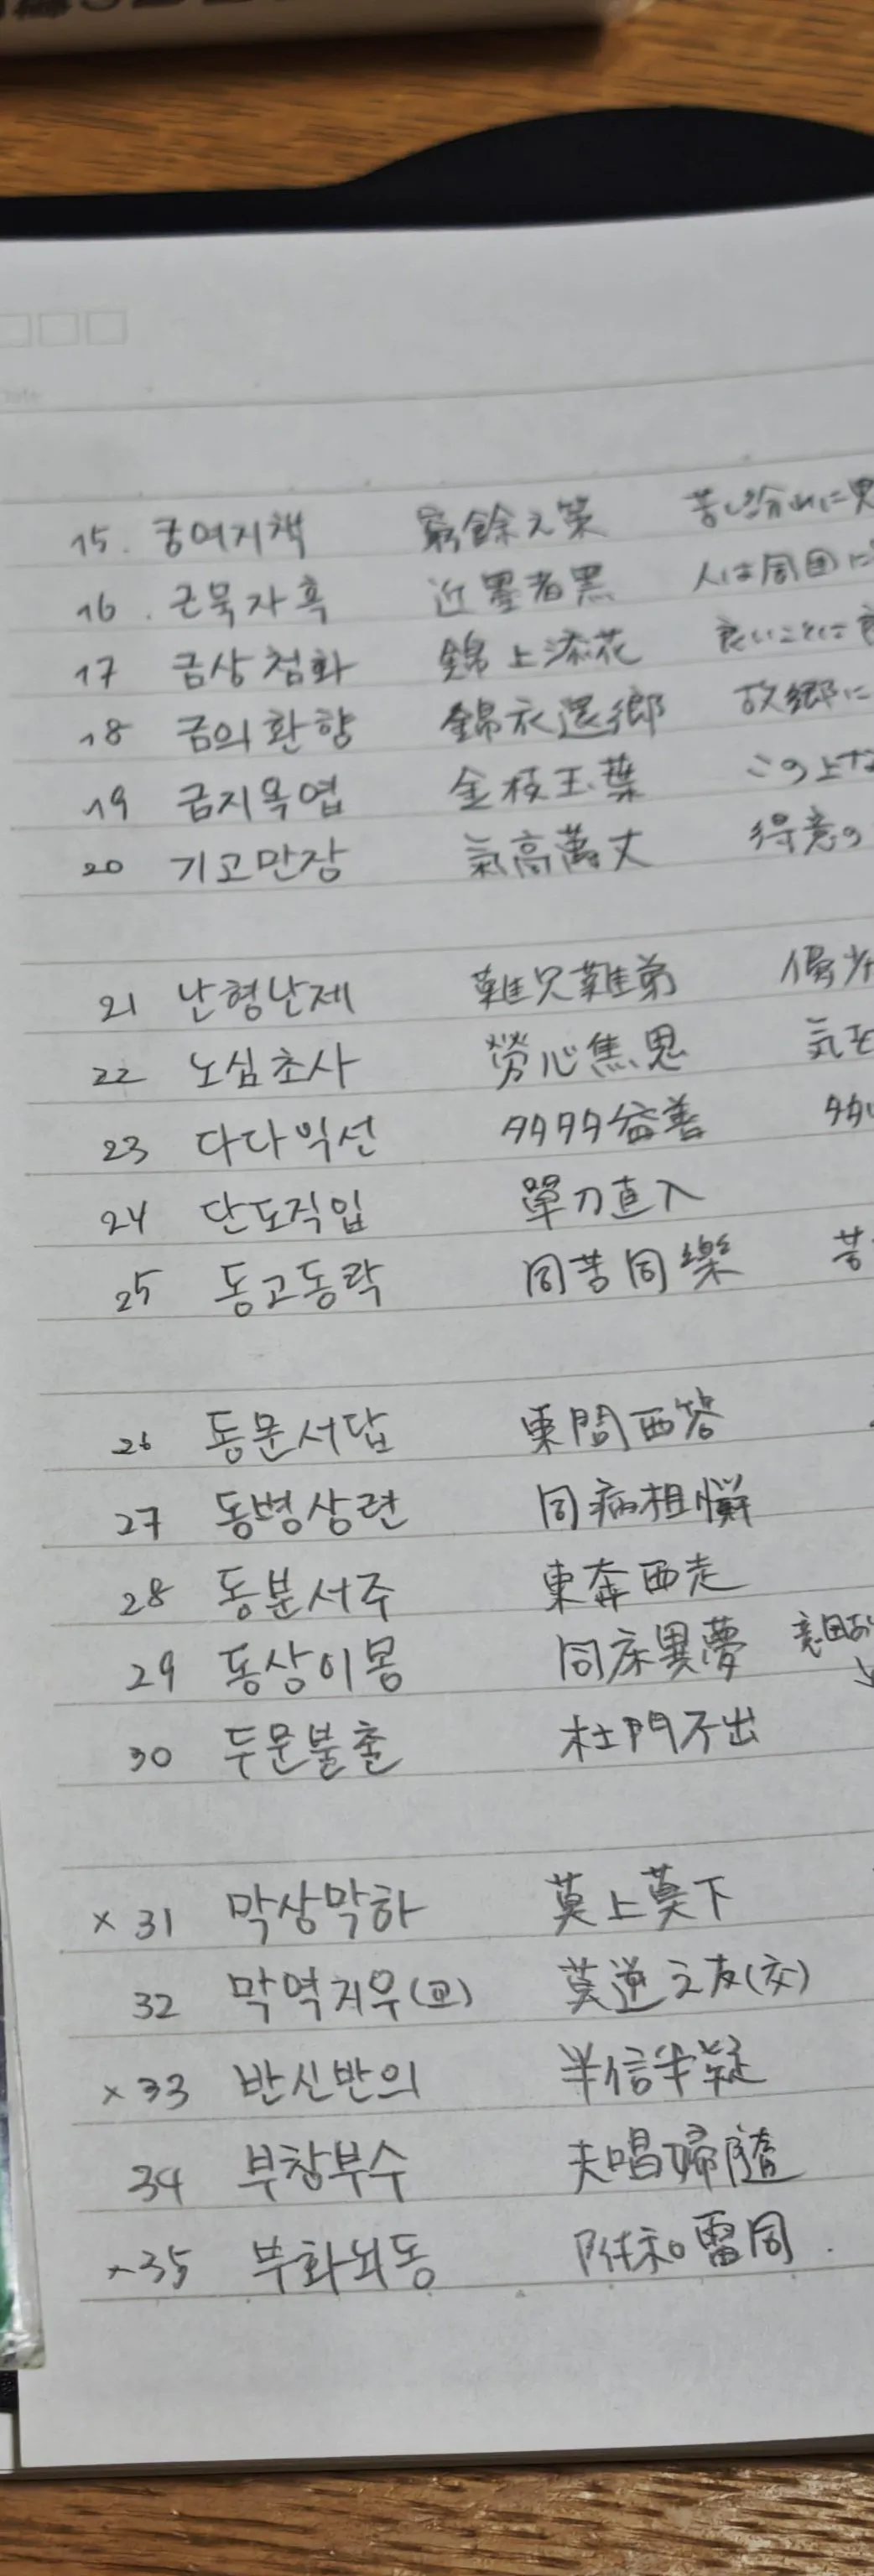 15. 궁여지책 窮餘之策 苦し紛れに
16. 근묵자흑 近墨者黑 人は周囲に
17 금상첨화 錦上添花 良いことに
18 금의환향 錦衣還鄕 故郷に
19 금지옥엽 金枝玉葉 この上
20 기고만장 氣高萬丈 得意の
21 난형난제 難兄難弟
22 노심초사 勞心焦思 気を
23 다다익선 多多益善
24 단도직입 單刀直入
25 동고동락 同苦同樂 苦
26 동문서답 東問西答
27 동병상련 同病相憐
28 동분서주 東奔西走
29 동상이몽 同床異夢
30 두문불출 杜門不出
× 31 막상막하 莫上莫下
32 막역지우(교) 莫逆之友(交)
× 33 반신반의 半信半疑
34 부창부수 夫唱婦隨
× 35 부화뇌동 附和雷同.